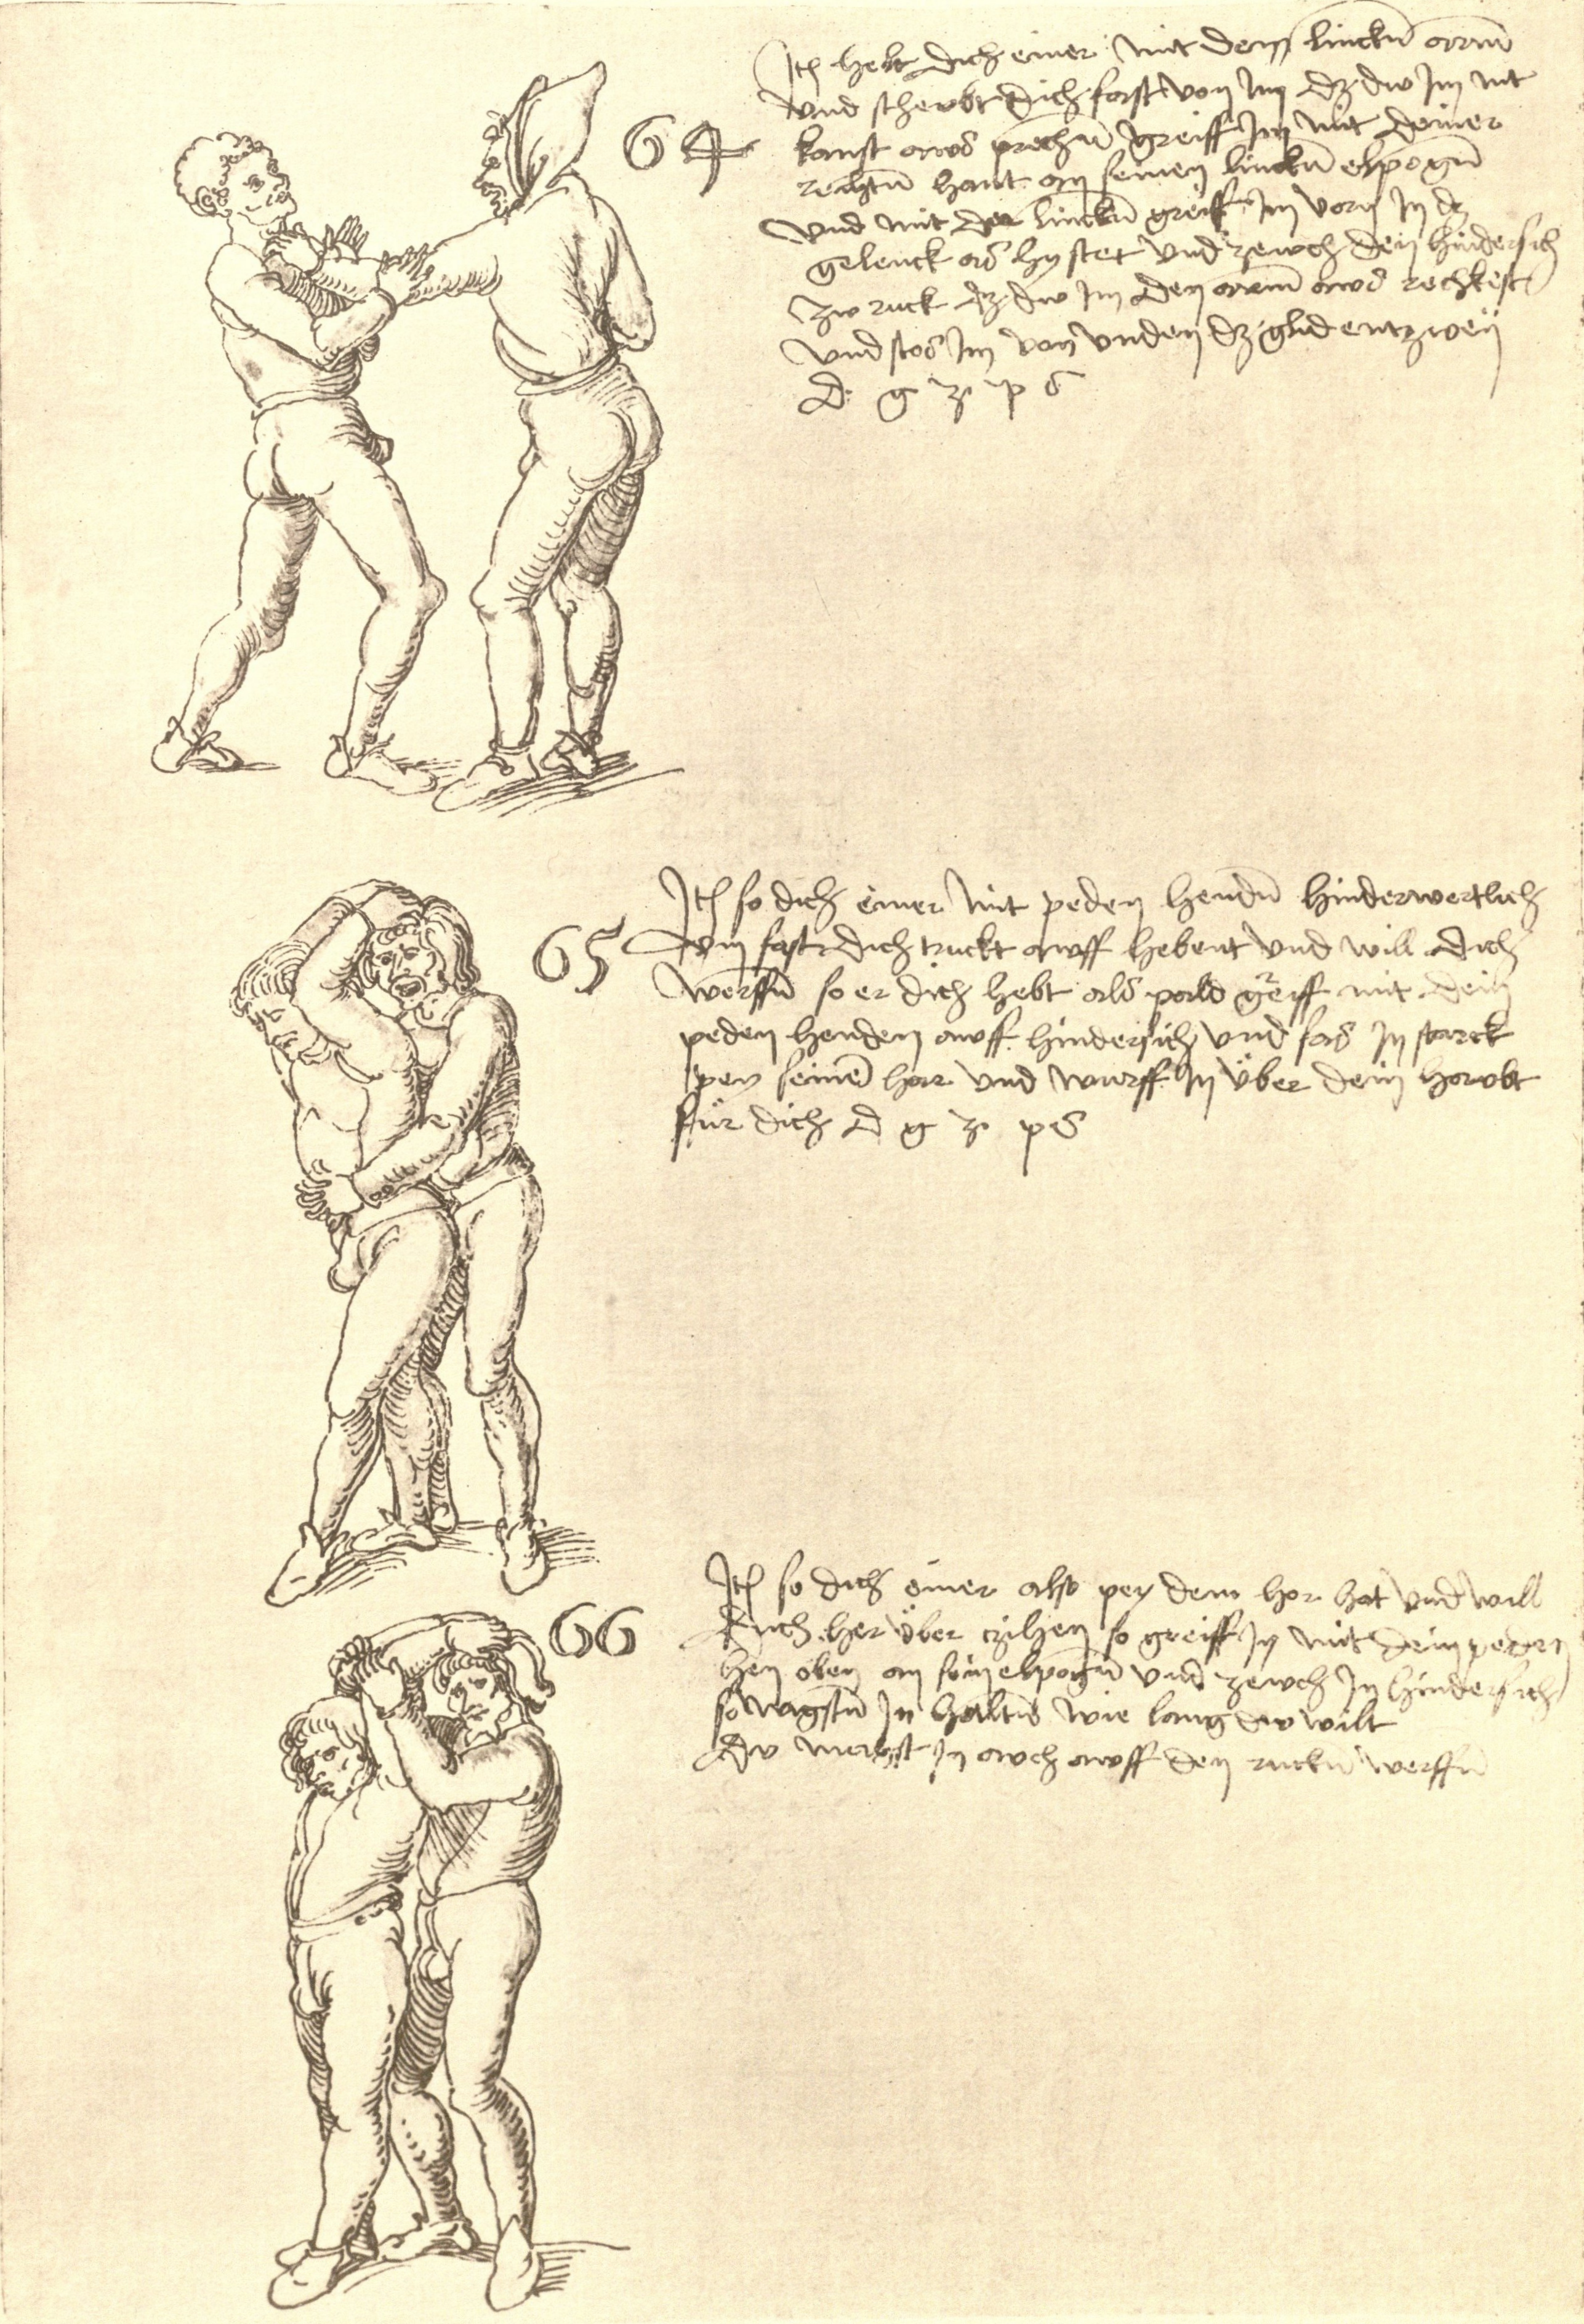 64
Itm helt dich einer mit dem linckn̄ arm
vnd schewbt dich fast von im dz dw im nit
kanst aws prechn̄ greiff im mit deiner
rechtn̄ hant an seinen linckn̄ elpogn̄
vnd mit der linckn̄ greiff im vorn in dz
gelenck als hy stet vnd zewch den hindersich
zw ruck dz dw im den arm aws reckest
vnd stos im von vnden dz glid entzweÿ
D g z p s
65
Itm so dich einer mit peden hendn̄ hinderwertlich
vm fast dich truckt awff hebent vnd will dich
werffn̄ so er dich hebt als pald greiff mit dein
peden henden awff hindersich vnd fas in starck
pey seinē har vnd wurff in über dein hawbt
für dich D g z p s
66
Itm so dich einer also pey dem hor hat vnd will
dich her über zihen so greiff in mit dein peden
hen oben an sein elpogn̄ vnd zewch in hindersich
so magstu in haltn̄ wie lang dw wilt
dw magst in awch awff den ruckn̄ werffn̄